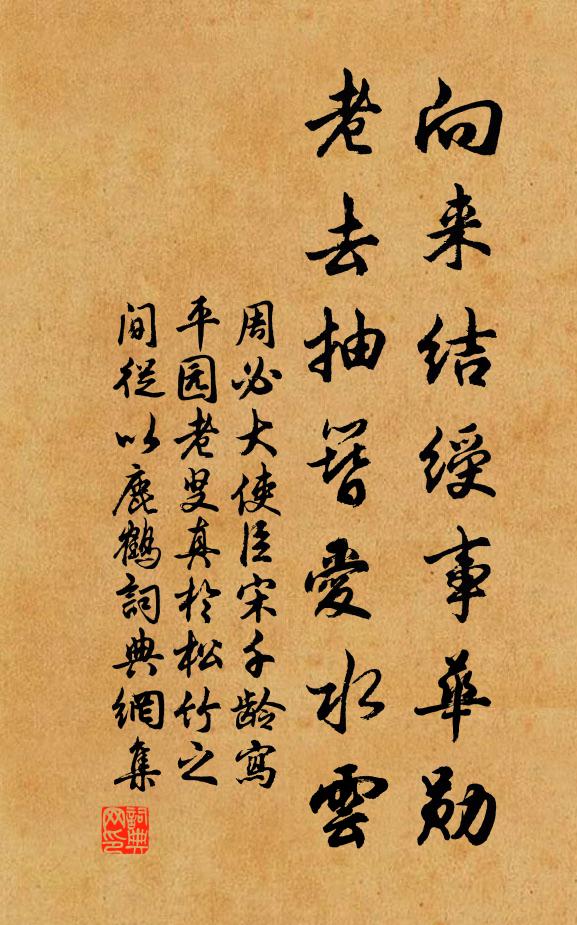 向来结绶事华勋
老去抽簪爱水云
周必大使臣宋千龄寫
平园老叟真於松竹之
间従以鹿鶴詞典網集
詞典
网印